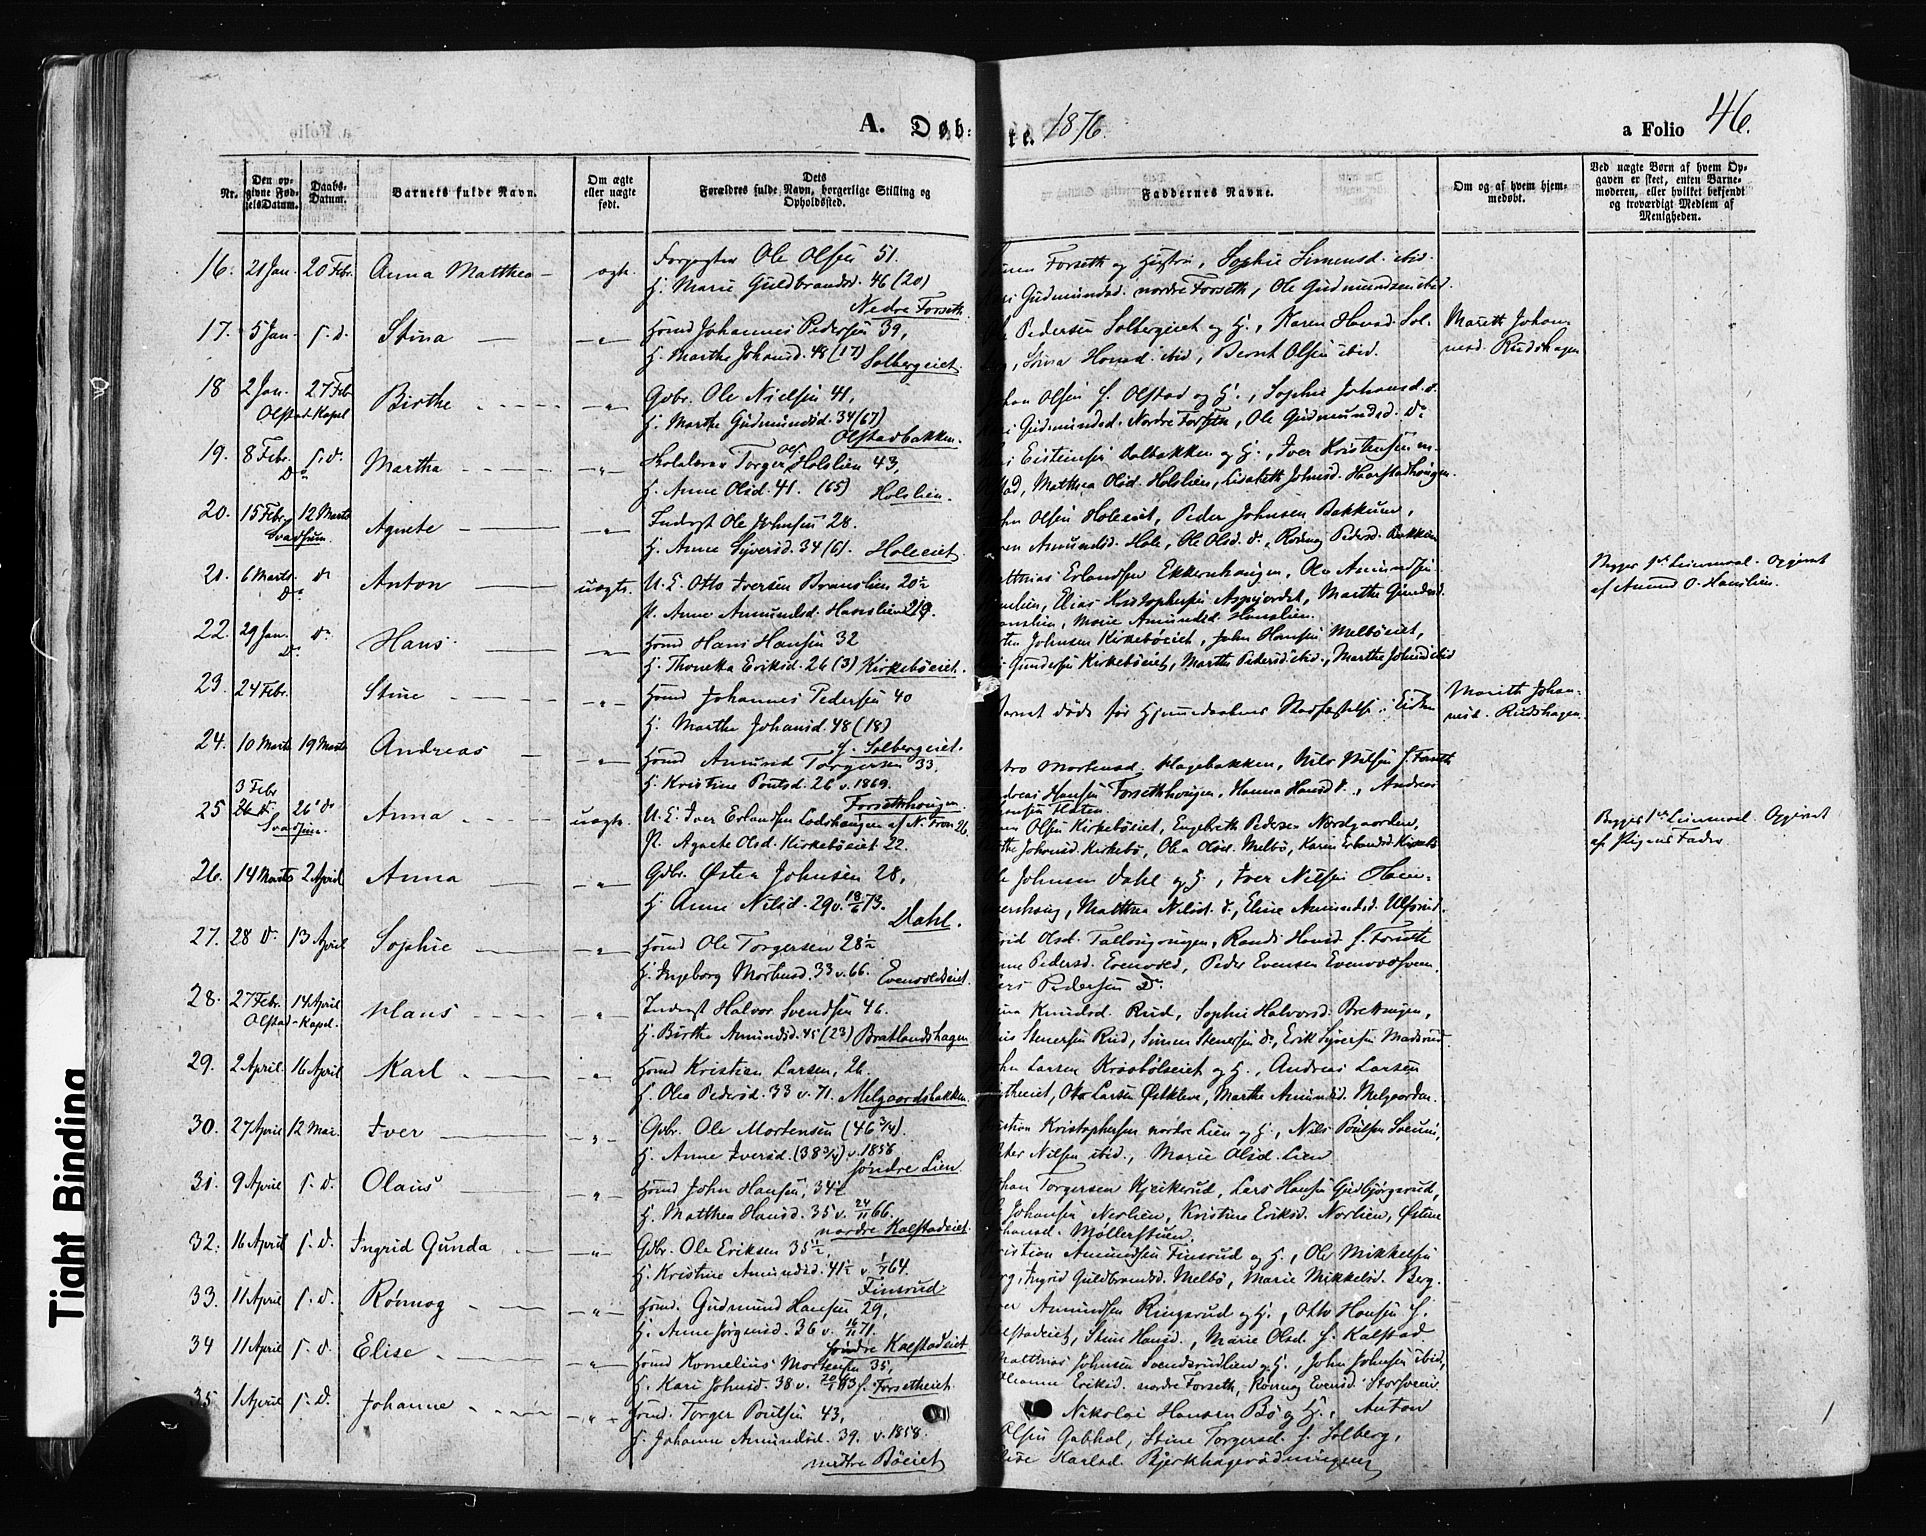 A. Døb- te. 1876.
a Folio 46.
Nr.
Den opgivne FødselsDatum.
Daabs-Datum.
Barnets fulde Navn.
Om ægte eller uægte født.
Dets Forældres fulde Navn, borgerlige Stilling og Opholdssted.
Faddernes Navne.
Om og af hvem hjemmedøbt.
Ved uægte Børn af hvem Opgaven er skeet, enten Barnemoderen, eller hvilket bekjendt og troværdigt Medlem af Menigheden.
16. 21 Jan. 20 Febr. Anna Matthea – ægte. Ole Olsen 51.
H. Marie Guldbrandsd. 46 (20)
Nedre Forseth
Forseth og Hustru, Sophie Simensd. ibid.
Gudmundsd. nordre Forseth, Ole Gudmundsen ibid.
17. 5 Jan. s. d. Stina – „ – Huusmd Johannes Pedersen 39,
H. Marthe Johansd. 48 (17) Solbergeiet.
Pedersen Solbergeiet og H., Karen Hansd. Sol-
Stina Hansd. ibid, Bernt Olsen ibid.
Marith Johan-
nesd. Rudshagen
18 2 Jan. 27 Febr Birthe – „ – Gdbr. Ole Nielsen 41,
Olstad Kapel
H. Marthe Gudmundsd. 34 (67)
Olstadbakken.
Olsen s. Olstad og H., Sophie Johansd. d.
Gudmundsd. Nordre Forseth, Ole Gudmundsd. do
19. 8 Febr. s. d. Martha – „ – Skolelærer Torger Ols. Holslien 43,
H. Anne Olsd. 41. (65) Holslien.
Eisteinsen Aalbakken og H., Iver Kristensen
Matthea Olsd. Holslien, Lisabeth Johnsd. Harstadhaugen
20. 15 Febr. 12 Marts Agnete – „ – Inderst Ole Johnsen 28.
Svadsum.
H. Anne Syversd. 34 (6). Holeeiet
Olsen Holeeiet, Peder Johnsen Bakkum,
Amundsd. Hole, Ole Olsd. do, Rønnog Pedersd. Bakken
21. 6 Marts do Anton – uægte. U. E. Otto Iversen Brænslien 20½
P. Anne Amundsd. Hanslien 21 9.
Matthias Erlandsen Ekkernhaugen, Ole Amundsen
Elias Kristophersen Aspejordet, Marthe Gundersd.
Hanslien, Marie Amundsd. Hanslien.
Begges 1ste Leiermaal. Opgivet
af Amund O. Hanslien.
22. 29 Jan. do. Hans – „ – Huusmd Hans Hansen 32
H. Thoneta Eriksd. 26 (3) Kirkebøeiet.
Johnsen Kirkebøeiet, John Hansen Melbøeiet,
Gundersen Kirkebøeiet, Marthe Pedersd. ibid., Marthe Johnsd ibid
23. 24 Febr. Stine – „ – Huusmd Johannes Pedersen 40
H. Marthe Johansd. 48 (18)
s. Solbergeiet.
Barnet døde før Hjemmedaabens Stadfæstelse i
Marith Johan-
nesd. Rudshagen.
24. 10 Marts 19 Marts Andreas – „ – Huusmd Amund Torgersen 33,
H. Kristine Poulsd. 26 v. 1869.
Forsethhaugen
Mortensd. Hagebakken, Nils Nilsen s. Forseth
Andreas Hansen Forsethhaugen, Hanna Hansd do., Andreas
Hansen Flaten
3 Febr
25 26 do Anna uægte. U. E. Iver Erlandsen Lodshaugen af N. Fron 26.
Svadsum.
P. Agnete Olsd. Kirkebøeiet 22.
Olsen Kirkebøeiet, Engebreth Pedersen Nordgaarden,
Johansd. Kirkebø, Olea Olsd. Melbø, Karen Erlandsd
Begges 1ste Leiermaal. Opgivet
af Pigens Fader
26. 14 Marts 2 April Anna – „ – Gdbr. Østen Johnsen 28,
H. Anne Nilsd. 29 v. 18/6 73. Dahl.
Johnsen Dahl og H., Iver Nilsen
Matthea Nilsd. d., Eline Amundsd. Ulfsrud.
27. 28 d. 13 April Sophie – „ – Huusmd Ole Torgersen 28½
H. Ingeborg Mortensd. 33 v. 66. Evenvoldeiet.
Olsd. Randi Hansd. s. Forseth
Pedersd. Evenvold, Peder Evensen Evenvoldsveen
Lars Pedersen do.
28. 27 Febr. 14 April Hans – „ – Inderst Halvor Svendsen 46.
Olstad-Kapel.
H. Birthe Amundsd. 45 (23) Bratlandshagen
Knudsd. Rud, Sophie Halvorsd. Brekkeeiet,
Stenersen Rud, Simen Stenersen do., Erik Syversen Madsrud.
29. 2 April. 16 April Karl – „ – Huusmd Kristian Larsen, 26.
H. Olea Pedersd. 33 v. 71. Melgaardsbakken.
John Larsen Kraabøleiet og H., Andreas Larsen
Otto Larsen Østkleve, Marthe Amundsd. Melgaarden.
30. 27 April 12 Mai. Iver – „ – Gdbr. Ole Mortensen (46 3/4).
H. Anne Iversd. (38 3/4) v. 1858
søndre Lien.
Kristian Kristophersen nordre Lien og H., Nils Poulsen Sveum,
Peter Nilsen ibid., Marie Olsd. Lien
31. 9 April s. d. Olaus – „ – Huusmd John Hansen, 34½
H. Matthea Hansd. 35 v. 24/11 66.
nordre Kalstadeiet.
Johan Torgersen Kjeikerud, Lars Hansen Gudbjørgsrud,
Johansen Nerlien, Kristine Eriksd. Norlien, Østen
Johansd. Møllerstuen.
32. 16 April s. d. Ingrid Gunda – „ – Gdbr. Ole Eriksen 35½,
H. Kristine Amundsd. 41½ v. 1/1 64.
Finsrud.
Kristian Amundsen Finsrud og H., Ole Mikkelsen
Berg, Ingrid Guldbrandsd. Melbø, Marie Mikkelsd. Berg.
33. 11 April s. d. Rønnog – „ – Huusmd. Gudmund Hansen 29,
H. Anne Jørgensd. 36 v. 16/11 71.
søndre Kalstadeiet
Iver Amundsen Ringsrud og H., Otto Hansen s.
Kalstadeiet, Stine Hansd., Marie Olsd. s. Kalstad
34 11 April s. d. Elise – „ – Huusmd Kornelius Mortensen 35,
H. Kari Johnsd. 38 v. 73 s. Forsetheiet.
Matthias Johnsen Svendsrudlien og H., John Johnsen ibid,
Johanne Eriksd. nordre Forseth, Rønnog Evensd. Storsveen
35 1 April s. d. Johanne – „ – Huusmd. Torger Poulsen 43,
H. Johanne Amundsd. 39. v. 1858.
nedre Bøeiet
Nikolai Hansen Bø og H., Anton
Olsen Gabhol, Stine Torgersd. s. Solberg,
Karlsd. Bjerkhagerødningen
Tight Binding